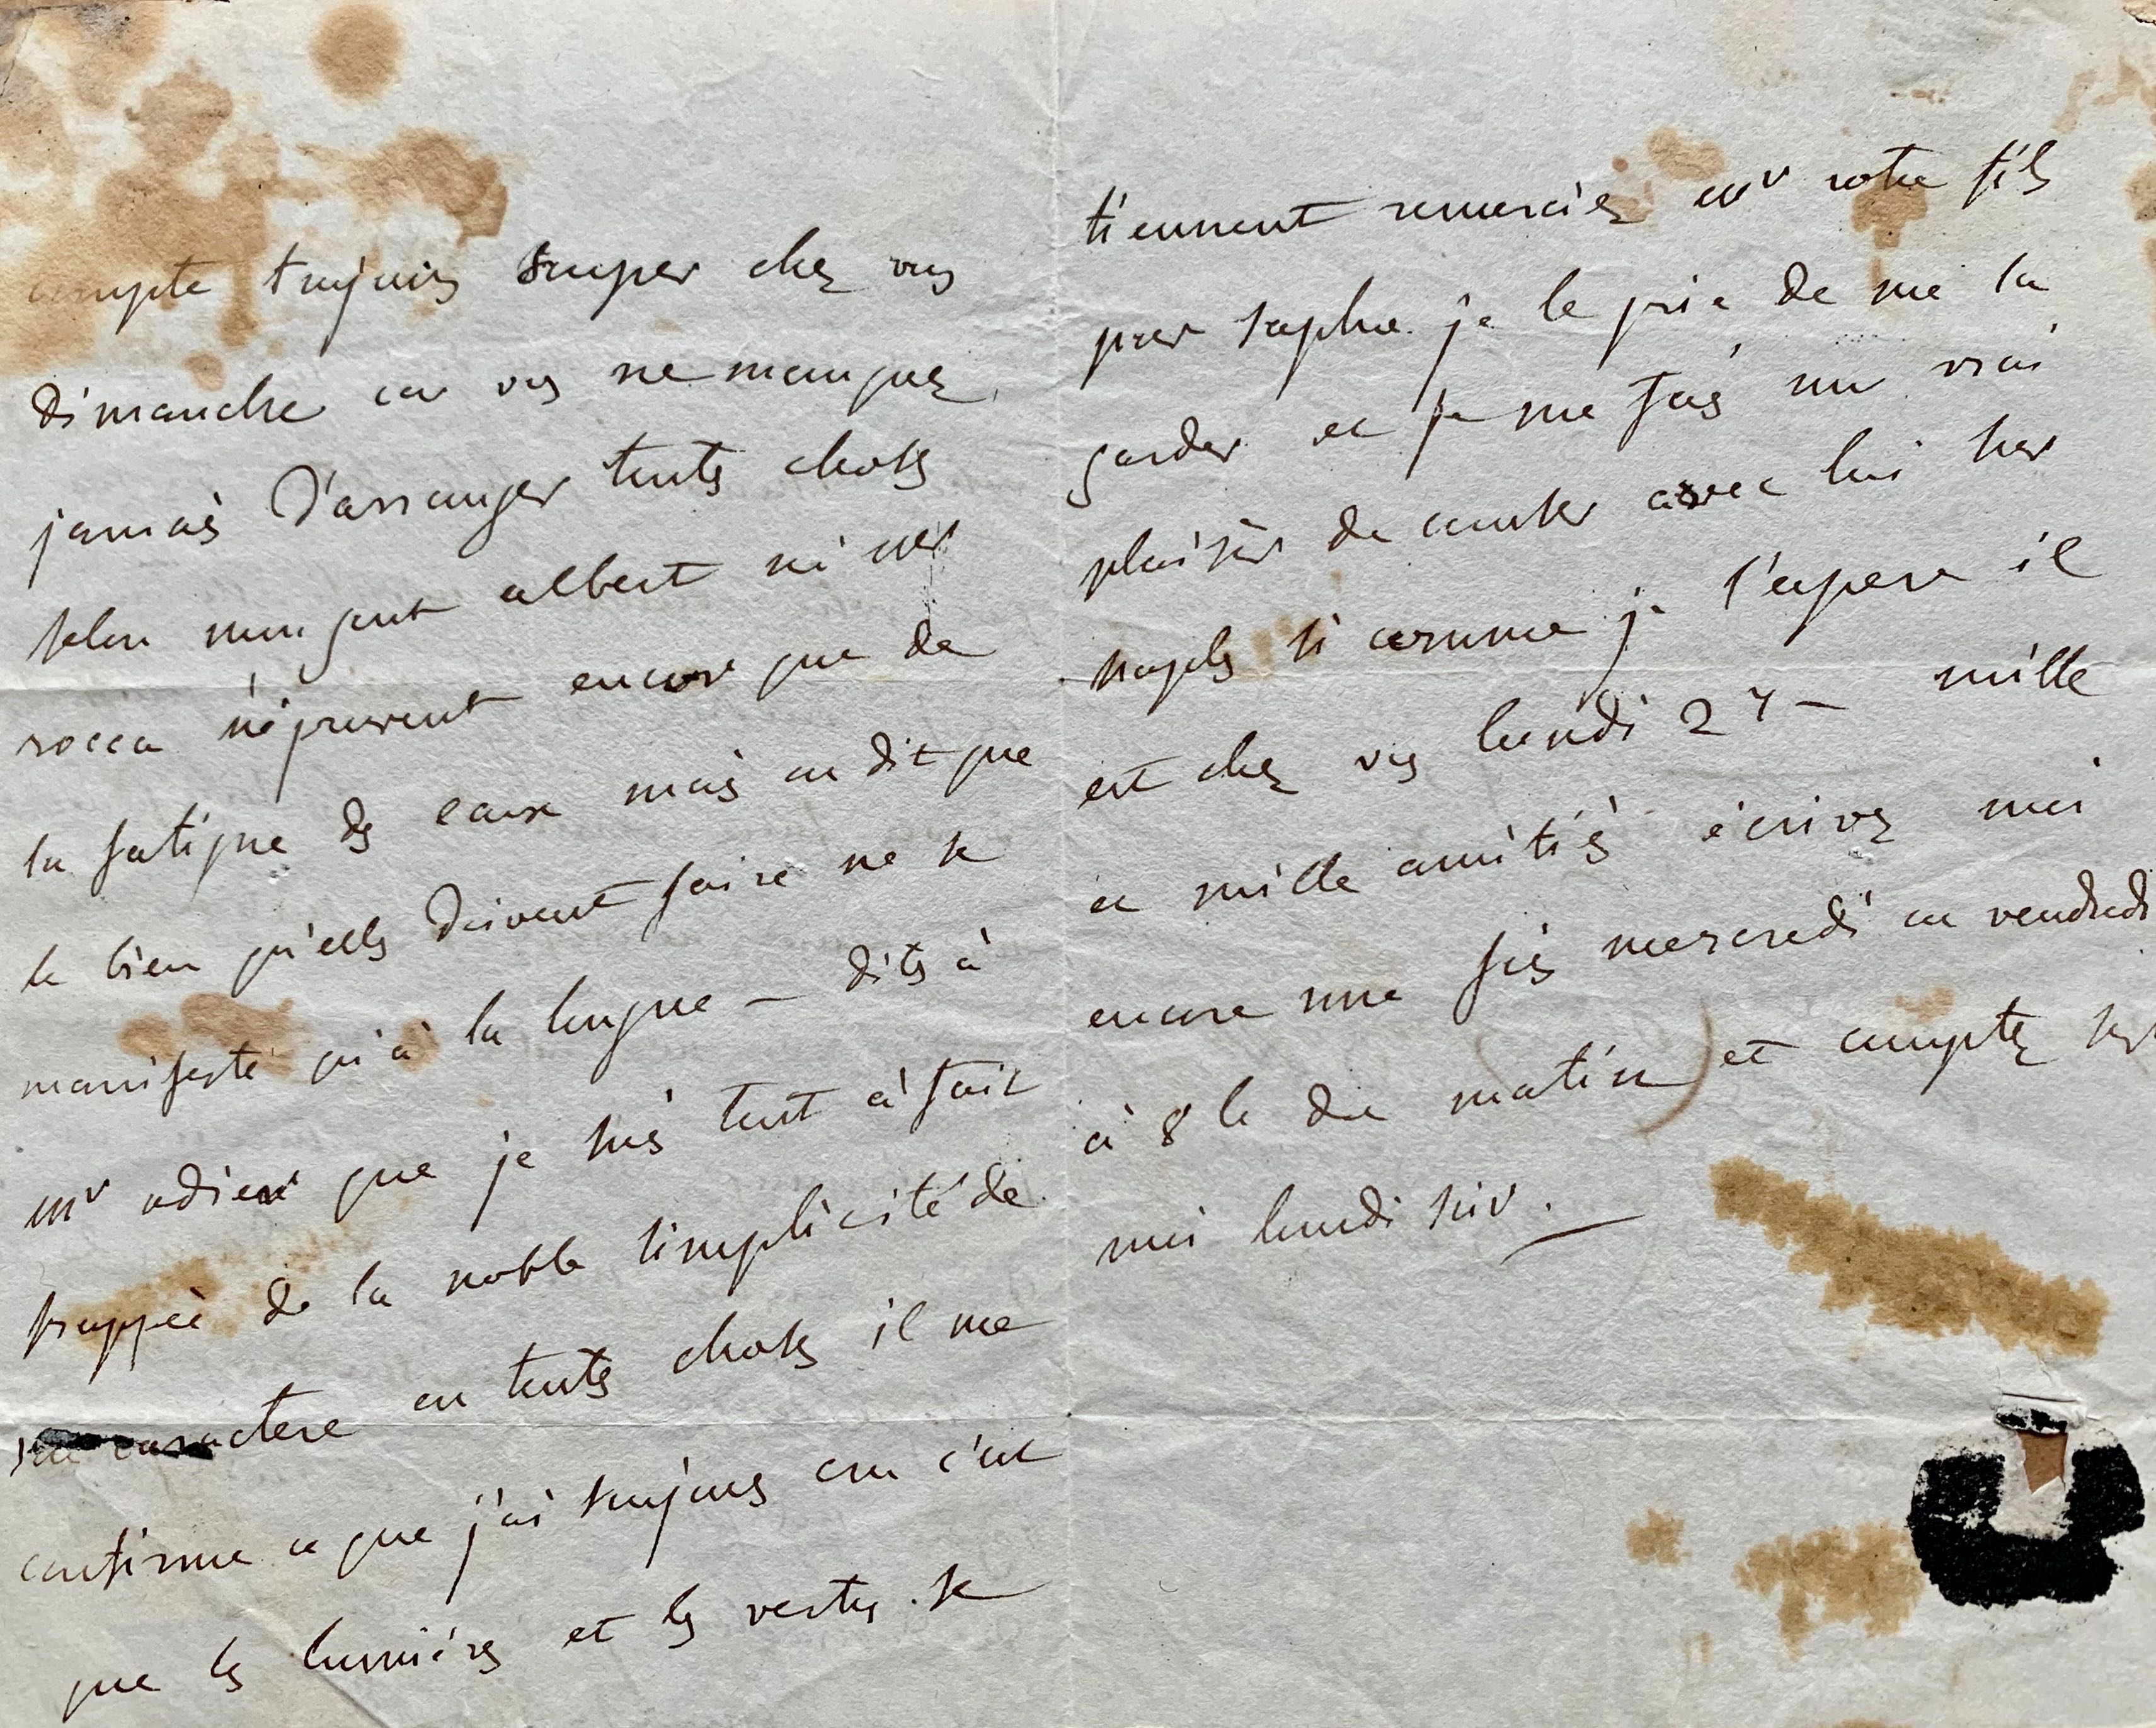 compte toujours souper chez vous
dimanche car vous ne manquez
jamais d'arranger toutes choses
selon mon gout albert ni mr
rocca n'éprouvent encore que de
la fatigue des eaux mais on dit que
le bien qu'elles doivent faire ne se
manifeste qu'à la longue — dites à
mr odier que je suis tout à fait
frappée de la noble simplicité de
son caractere en toutes choses il me
confirme ce que j'ai toujours cru c'est
que les lumières et les vertus se
tiennent remerciez mr votre fils
pour sapho je le prie de me la
garder et je me fais un vrai
plaisir de causer avec lui sur
naples si comme je l'espere il
est chez vous lundi 27 — mille
et mille amitiés écrivez moi
encore une fois mercredi ou vendredi
à 8 h du matin et comptez sur
moi lundi soir. —